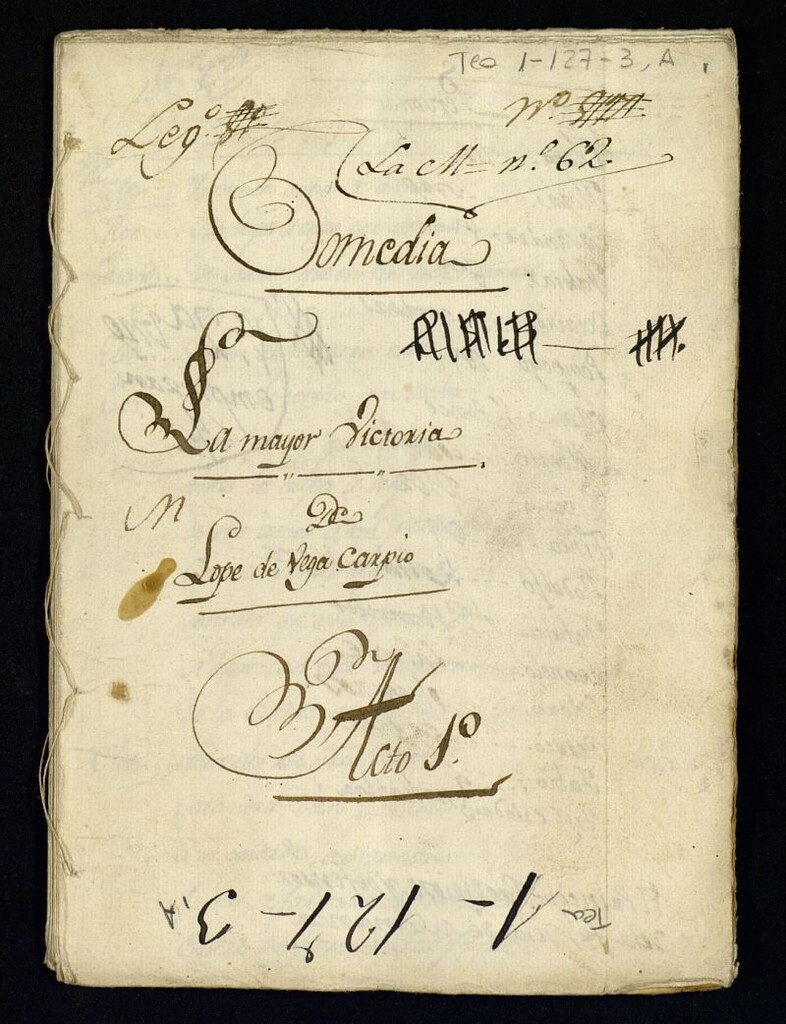 Teo 1-127-3, A
Leg.º Nº
La M= nº. 62.
Comedia
La mayor Victoria
M De
Lope de Vega Carpio
Acto 1º.
Tea 1-127-3, A